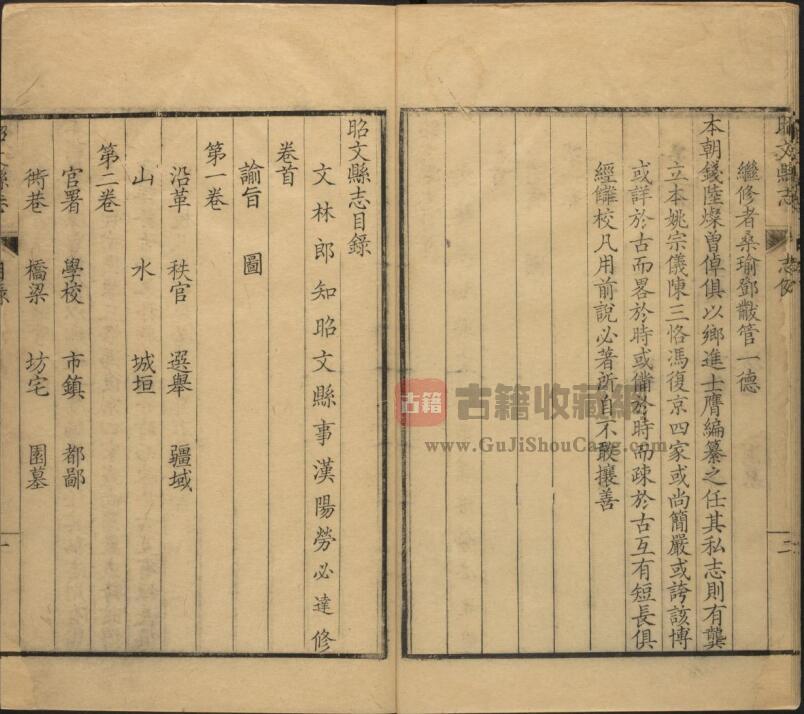 昭文縣志
志例
二
繼修者桑瑜鄧韍管一德
本朝錢陸燦曾倬俱以鄉進士膺編纂之任其私志則有龔
立本姚宗儀陳三恪馮復京四家或尚簡嚴或誇該博
或詳於古而畧於時或備於時而疎於古互有短長俱
經讎校凡用前說必著所自不敢攘善
昭文縣志目錄
文林郎知昭文縣事漢陽勞必達修
卷首
諭旨 圖
第一卷
沿革 秩官 選舉 疆域
山 水 城垣
第二卷
官署 學校 市鎮 都鄙
衖巷 橋梁 坊宅 園墓
昭文縣志
目錄
一
古籍 古籍收藏網
www.GuJiShouCang.com